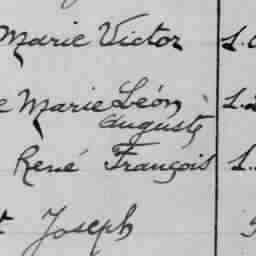 Marie Victor
Marie Léon
Auguste
René François
Joseph